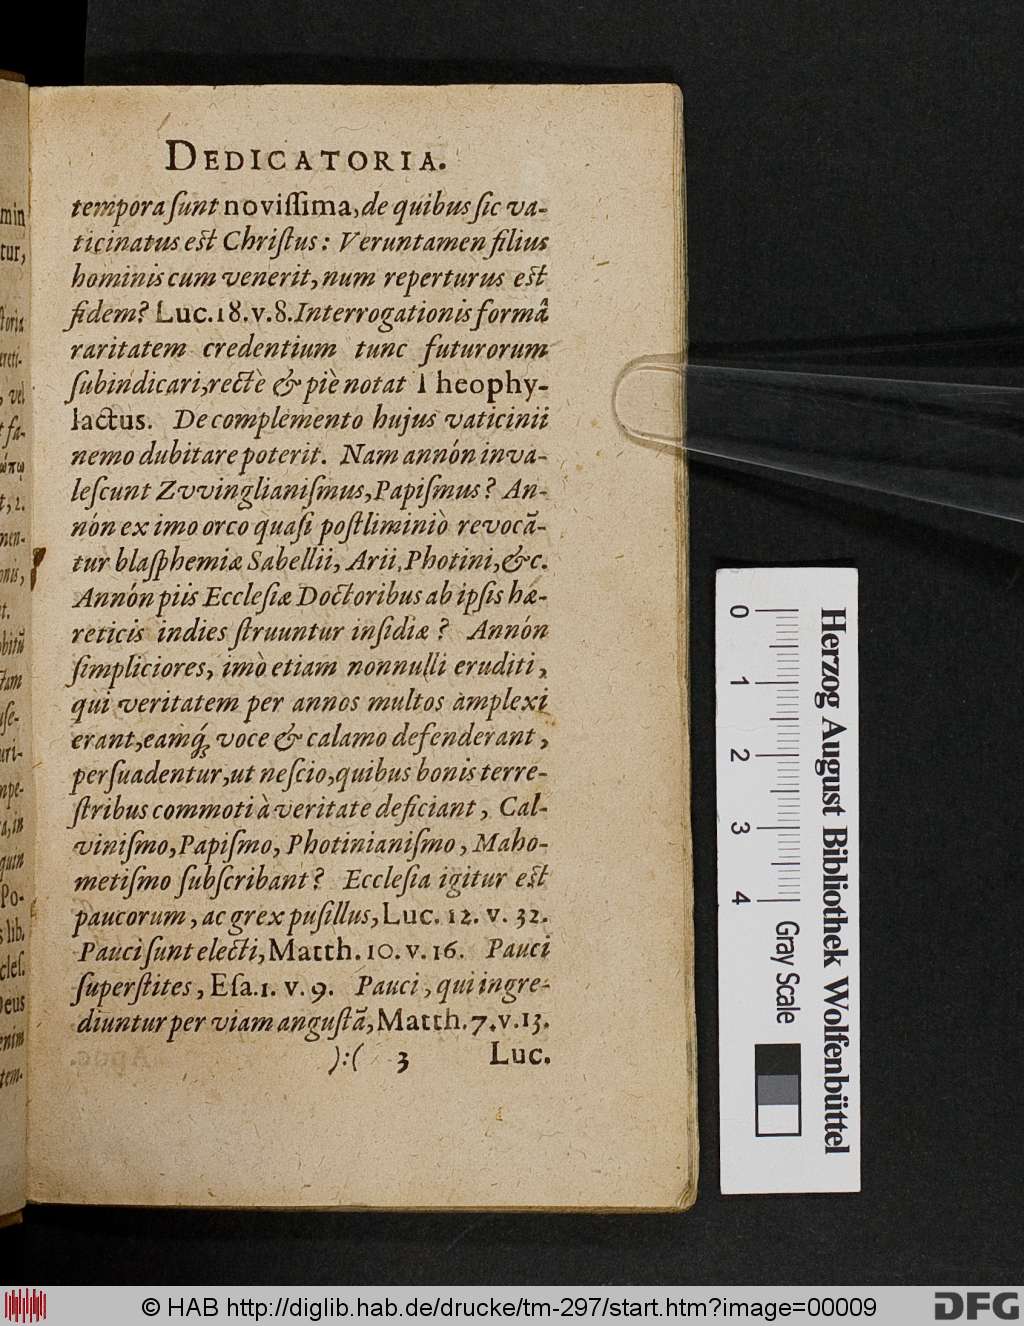 DEDICATORIA.
tempora ſunt noviſſima, de quibus ſic va-
ticinatus eſt Chriſtus: Veruntamen filius
hominis cum venerit, num reperturus eſt
fidem? Luc. 18. v. 8. Interrogationis formâ
raritatem credentium tunc futurorum
ſubindicari, rectè & piè notat Theophy-
lactus. De complemento hujus vaticinii
nemo dubitare poterit. Nam annón inva-
leſcunt Zvvinglianiſmus, Papiſmus? An-
nón ex imo orco quaſi poſtliminiò revocã-
tur blaſphemiæ Sabellii, Arii, Photini, &c.
Annón piis Eccleſiæ Doctoribus ab ipſis hæ-
reticis indies ſtruuntur inſidiæ? Annón
ſimpliciores, imò etiam nonnulli eruditi,
qui veritatem per annos multos amplexi
erant, eamq́; voce & calamo defenderant,
perſuadentur, ut neſcio, quibus bonis terre-
ſtribus commoti à veritate deficiant, Cal-
viniſmo, Papiſmo, Photinianiſmo, Maho-
metiſmo ſubſcribant? Eccleſia igitur eſt
paucorum, ac grex puſillus, Luc. 12. v. 32.
Pauci ſunt electi, Matth. 10. v. 16. Pauci
ſuperſtites, Eſa. 1. v. 9. Pauci, qui ingre-
diuntur per viam anguſtã, Matth. 7. v. 13.
):( 3 Luc.
0 1 2 3 4 Gray Scale
Herzog August Bibliothek Wolfenbüttel
© HAB http://diglib.hab.de/drucke/tm-297/start.htm?image=00009
DFG